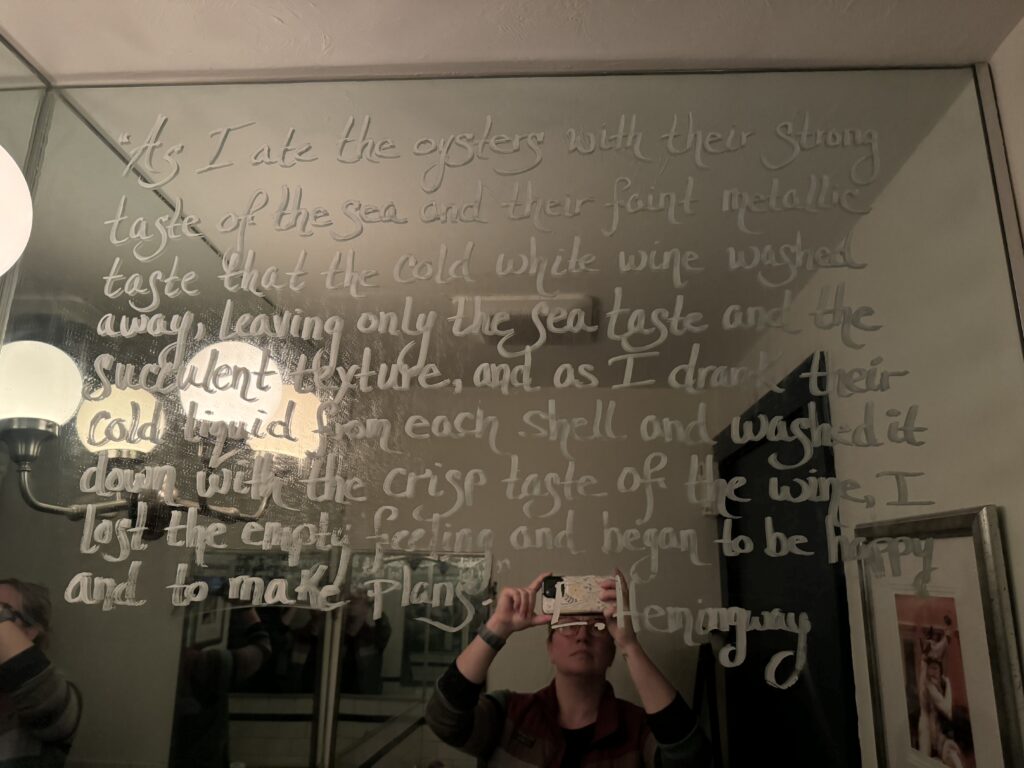 "As I ate the oysters with their strong
taste of the sea and their faint metallic
taste that the cold white wine washed
away, leaving only the sea taste and the
succulent texture, and as I drank their
cold liquid from each shell and washed it
down with the crisp taste of the wine, I
lost the empty feeling and began to be happy
and to make plans."
- Hemingway